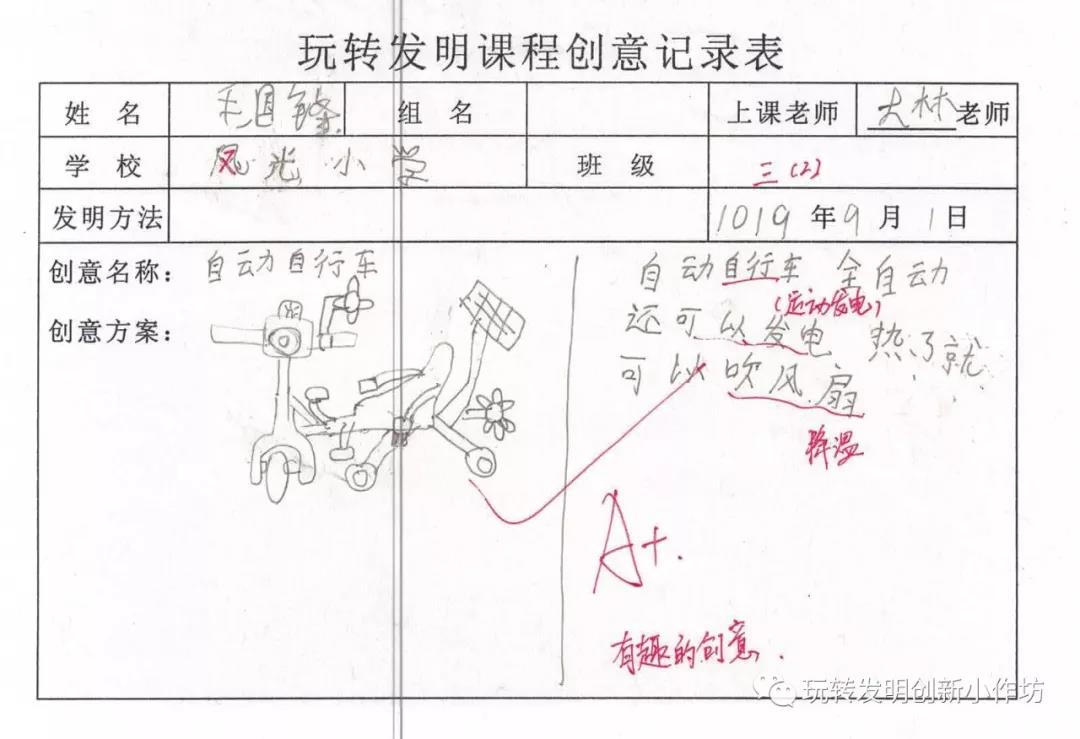 玩转发明课程创意记录表
姓 名 王国锋 组 名 上课老师 大林老师
学 校 凤光小学 班 级 三(2)
发明方法 1019年9月1日
创意名称: 自动自行车
创意方案:
自动自行车 全自动
(运动发电)
还可以发电 热了就
可以吹风扇
降温
A+.
有趣的创意.
玩转发明创新小作坊